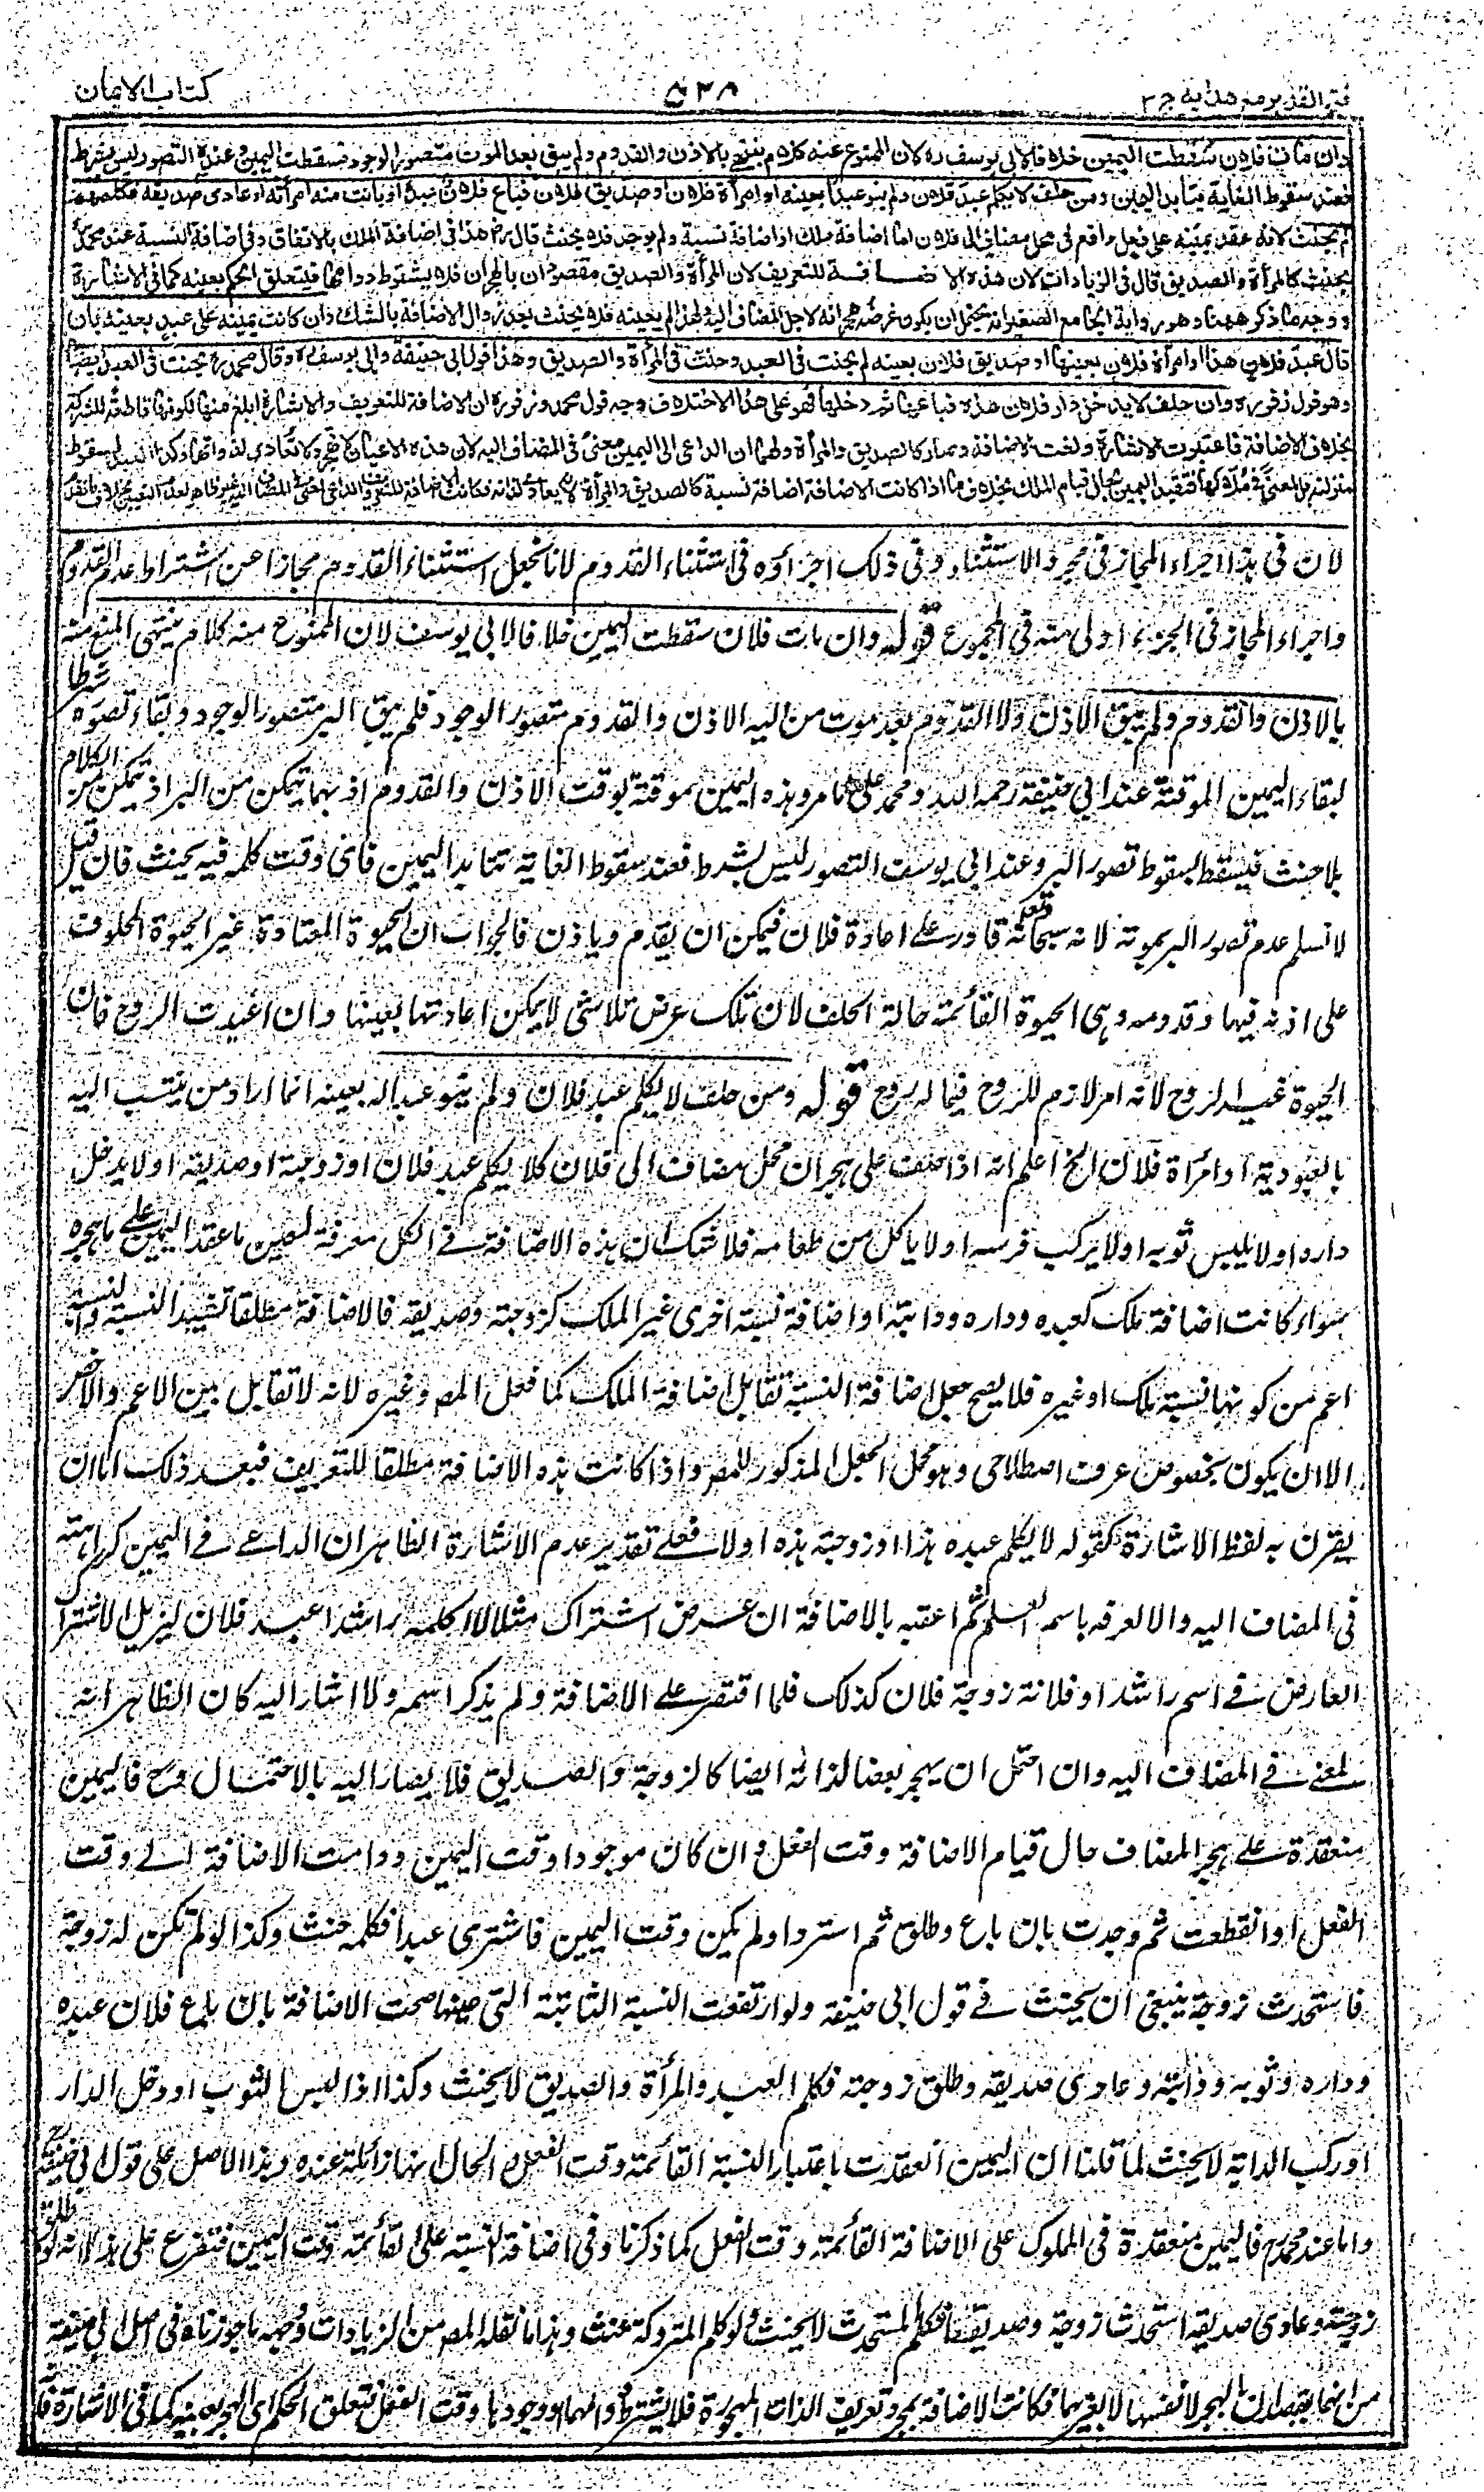 فتح القدير مع هدايه ج ٢
٥٣٨
كتاب الايمان
وان مات فلان سقطت اليمين خلافا لابى يوسف ره لان الممنوع عنه كلام ينتهى بالاذن والقدوم ولم يبق بعد الموت متصور الوجود فسقطت اليمين وعنده التصور ليس بشرط
فعند سقوط الغاية يتأبد اليمين ومن حلف لا يكلم عبد فلان ولم ينو عبدا بعينه او امرأة فلان او صديق فلان فباع فلان عبده او بانت منه امرأته او عادى صديقه فكلمهم
لم يحنث لانه عقد يمينه على فعل واقع فى محل مضاف الى فلان اما اضافة ملك او اضافة نسبة ولم يوجد فلا يحنث قال رح هذا فى اضافة الملك بالاتفاق وفى اضافة النسبة عند محمد
يحنث كالمرأة والصديق قال فى الزيادات لان هذه الاضافة للتعريف لان المرأة والصديق مقصودان بالهجران فلا يشترط دوامها فيتعلق الحكم بعينه كما فى الاشارة
ووجه ما ذكر ههنا وهو رواية الجامع الصغير انه يحتمل ان يكون غرضه هجرانه لاجل المضاف اليه ولهذا لم يعينه فلا يحنث بعد زوال الاضافة بالشك وان كانت يمينه على عبد بعينه بان
قال عبد فلان هذا او امرأة فلان بعينها او صديق فلان بعينه لم يحنث فى العبد وحنث فى المرأة والصديق وهذا قول ابى حنيفة وابى يوسف ره وقال محمد رح يحنث فى العبد ايضا
وهو قول زفر ره وان حلف لا يدخل دار فلان هذه فباعها ثم دخلها فهو على هذا الاختلاف وجه قول محمد وزفر ره ان الاضافة للتعريف والاشارة ابلغ منها لكونها قاطعة للشركة
بخلاف الاضافة فاعتبرت الاشارة ولغت الاضافة وصار كالصديق والمرأة ولهما ان الداعى الى اليمين معنى فى المضاف اليه لان هذه الاعيان لا تهجر ولا تعادى لذواتها وكذا العبد لسقوط
منزلته بل لمعنى فى ملاكها فتتقيد اليمين بحال قيام الملك بخلاف ما اذا كانت الاضافة اضافة نسبة كالصديق والمرأة لانه يعادى لذاته فكانت الاضافة للتعريف والداعى لمعنى فى المضاف اليه غير ظاهر لعدم التعيين بخلاف ما تقدم
لان فى هذا اجراء المجاز فى مجرد الاستثناء وفى ذلك اجزاؤه فى استثناء القدوم لانا نجعل استثناء القدوم مجازا عن اشتراط عدم القدوم
واجراء المجاز فى الجزء اولى منه فى المجموع قوله وان مات فلان سقطت اليمين خلافا لابى يوسف لان الممنوع منه كلام ينتهى المنع منه
بالاذن والقدوم ولم يبق الاذن ولا القدوم بعد موت من اليه الاذن والقدوم متصور الوجود فلم يبق البر متصور الوجود وبقاء تصوره شرطا
لبقاء اليمين الموقتة عند ابى حنيفة رحمه الله ومحمد على ما مر وهذه اليمين موقتة بوقت الاذن والقدوم اذ بهما يتمكن من البر اذ يتمكن من الكلام
بلا حنث فيسقط بسقوط تصور البر وعند ابى يوسف التصور ليس بشرط فعند سقوط الغاية تتأبد اليمين فاى وقت كلمه فيه يحنث فان قيل
لا نسلم عدم تصور البر بموته لانه سبحانه وتعالى قادر على اعادة فلان فيمكن ان يقدم وياذن فالجواب ان الحيوة المعتادة غير الحيوة المحلوف
على اذنه فيها وقدومه وهى الحيوة القائمة حالة الحلف لان تلك عرض تلاشى لا يمكن اعادتها بعينها وان اعيدت الروح فان
الحيوة غير الروح لانه امر لازم للروح فيما له روح قوله ومن حلف لا يكلم عبد فلان ولم ينو عبدا له بعينه انما اراد من ينسب اليه
بالعبودية او امرأة فلان الخ اعلم انه اذا حلف على هجران محل مضاف الى فلان كلا يكلم عبد فلان او زوجته او صديقه او لا يدخل
داره او لا يلبس ثوبه او لا يركب فرسه او لا ياكل من طعامه فلا شك ان هذه الاضافة فى الكل معرفة لعين ما عقد اليمين على ما هجره
سواء كانت اضافة ملك كعبده وداره ودابته او اضافة نسبة اخرى غير الملك كزوجته وصديقه فالاضافة مطلقا تفيد النسبة والنسبة
اعم من كونها نسبة ملك او غيره فلا يصح جعل اضافة النسبة تقابل اضافة الملك كما فعل المص وغيره لانه لا تقابل بين الاعم والاخص
الا ان يكون بخصوص عرف اصطلاحى وهو محل الجعل المذكور للمص واذا كانت هذه الاضافة مطلقا للتعريف فبعد ذلك اما ان
يقرن به لفظ الاشارة كقوله لا يكلم عبده هذا او زوجته هذه او لا فعلى تقدير عدم الاشارة الظاهر ان الداعى فى اليمين كراهته
فى المضاف اليه والا لعرفه باسم العلم ثم اعقبه بالاضافة ان عرض اشتراك مثلا لا اكلم راشدا عبد فلان ليزيل الاشتراك
العارض فى اسم راشد او فلانة زوجة فلان كذلك فلما اقتصر على الاضافة ولم يذكر اسمه ولا اشار اليه كان الظاهر انه
لمعنى فى المضاف اليه وان احتمل ان يهجر بعضا لذاته ايضا كالزوجة والصديق فلا يصار اليه بالاحتمال وح فاليمين
منعقدة على هجر المضاف حال قيام الاضافة وقت الفعل وان كان موجودا وقت اليمين ودامت الاضافة الى وقت
الفعل او انقطعت ثم وجدت بان باع وطلق ثم استرد او لم يكن وقت اليمين فاشترى عبدا فكلمه حنث وكذا لو لم تكن له زوجة
فاستحدث زوجة ينبغى ان يحنث فى قول ابى حنيفة ولو ارتفعت النسبة الثابتة التى حينها صحت الاضافة بان باع فلان عبده
وداره وثوبه ودابته وعادى صديقه وطلق زوجته فكلم العبد والمرأة والصديق لا يحنث وكذا اذا لبس الثوب او دخل الدار
او ركب الدابة لا يحنث لما قلنا ان اليمين انعقدت باعتبار النسبة القائمة وقت الفعل والحال انها زائلة عنده وهذا الاصل على قول ابى حنيفة رح
واما عند محمد رح فاليمين منعقدة فى المملوك على الاضافة القائمة وقت الفعل كما ذكرنا وفى اضافة النسبة على القائمة وقت اليمين فتفرع على هذا انه لو طلق
زوجته وعادى صديقه استحدث زوجة وصديقا فكلم المستحدث لا يحنث ولو كلم المتروكة حنث وهذا ما نقله المص من الزيادات وجهه ما جوزناه فى اصل ابى حنيفة
من انهما يقصدان بالهجر لانفسهما لا لغيرهما فكانت الاضافة لمجرد تعريف الذات المهجورة فلا يشترط دوامها ووجودها وقت الفعل فتعلق الحكم اى الهجر بعينه كما فى الاشارة